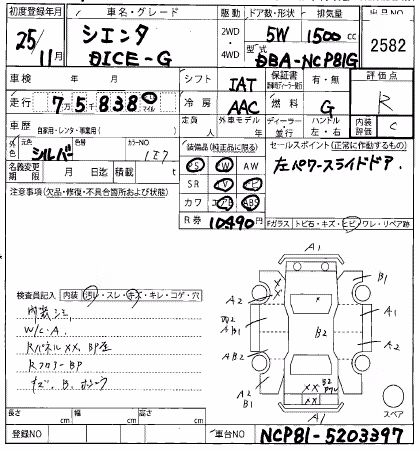 初度登録年月 車名・グレード 駆動 ドア数・形状 排気量 出品NO
25/11月 シエンタ DICE-G 2WD・4WD 5W 1500cc 2582
型式 DBA-NCP81G
車検 年 月 シフト IAT 保証書 有・無 評価点
走行 7万5838 km マイル 冷房 AAC 燃料 G R
車歴 自家用・レンタ・事業用( ) 定員 人 外車モデル 年 ディーラー・並行 ハンドル 左・右 内装評価 C
外色 元色 シルバー 色替 カラーNO 装備品(純正品に限る) セールスポイント(正常に作動するもの)
名義変更期限 月 日迄 積載 t PS PW AW 左パワースライドドア.
注意事項(欠品・修復・不具合箇所および状態) SR
カワ ABS
R券 10490円 Fガラス トビ石・キズ・ヒビ・ワレ・リペア跡
検査員記入 内装 汚レ・スレ・キズ・キレ・コゲ・穴
内装シミ
W/C.A.
RパネルXX,BP歪
RフロアーBP
キズ.B.
A1
A2
XX
B1
A1
A2
B2
AB1
AB2
A2
B1
A2
XX
A1
スペア
長さ cm 幅 cm 高さ cm
登録NO 車台NO NCP81-5203397